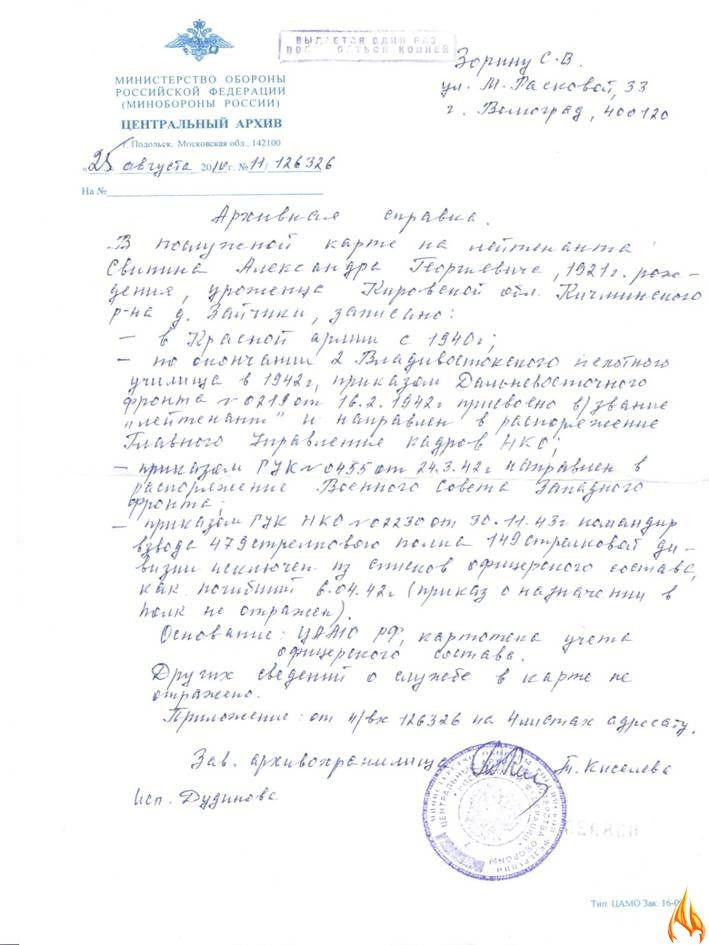 ВЫДАЕТСЯ ОДИН РАЗ
ПОЛЬЗОВАТЬСЯ КОПИЕЙ
МИНИСТЕРСТВО ОБОРОНЫ
РОССИЙСКОЙ ФЕДЕРАЦИИ
(МИНОБОРОНЫ РОССИИ)
ЦЕНТРАЛЬНЫЙ АРХИВ
г. Подольск, Московская обл., 142100
«25 августа 2010г. №11/126326
На №
Зорину С.В.
ул. М. Расковой, 33
г. Волгоград, 400120
Архивная справка.
В послужной карте на лейтенанта
Свинина Александра Георгиевича, 1921г. рож-
дения, уроженца Кировской обл. Кичминского
р-на д. Зайчики, записано:
– в Красной армии с 1940г;
– по окончании 2 Владивостокского пехотного
училища в 1942г, приказом Дальневосточного
фронта №0219 от 16.2.1942г присвоено в/звание
„лейтенант" и направлен в распоряжение
Главного Управления кадров НКО;
– приказом ГУК №0455 от 24.3.42г направлен в
распоряжение Военного Совета Западного
фронта;
– приказом ГУК НКО №02230 от 30.11.43г командир
взвода 479 стрелкового полка 149 стрелковой ди-
визии исключен из списков офицерского состава,
как погибший в .04.42г (приказ о назначении в
полк не отражен).
Основание: ЦАМО РФ, картотека учета
офицерского состава.
Других сведений о службе в карте не
отражено.
Приложение: от 4/вх 126326 на 4 листах адресату.
Зав. архивохранилища Т. Киселева
Исп. Дудинова
Тип. ЦАМО Зак. 16-09